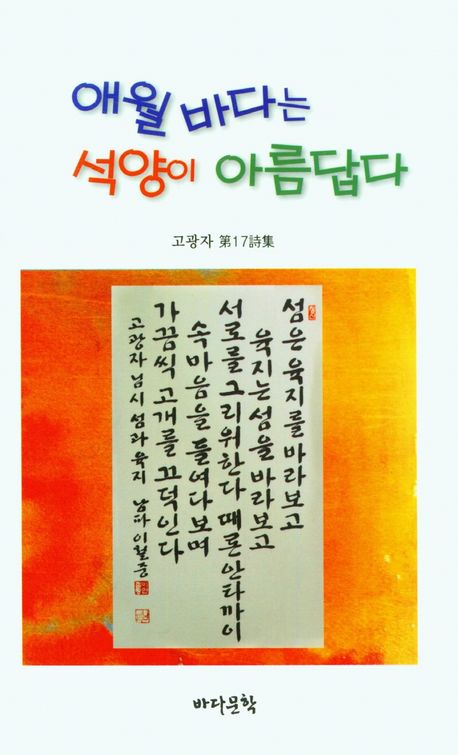 애월 바다는
석양이 아름답다
고광자 第17詩集
섬은 육지를 바라보고
육지는 섬을 바라보고
서로를 그리워한다 때론 안타까이
속마음을 들여다보며
가끔씩 고개를 끄덕인다
고광자님 시 섬과 육지 남파 이철중
바다문학